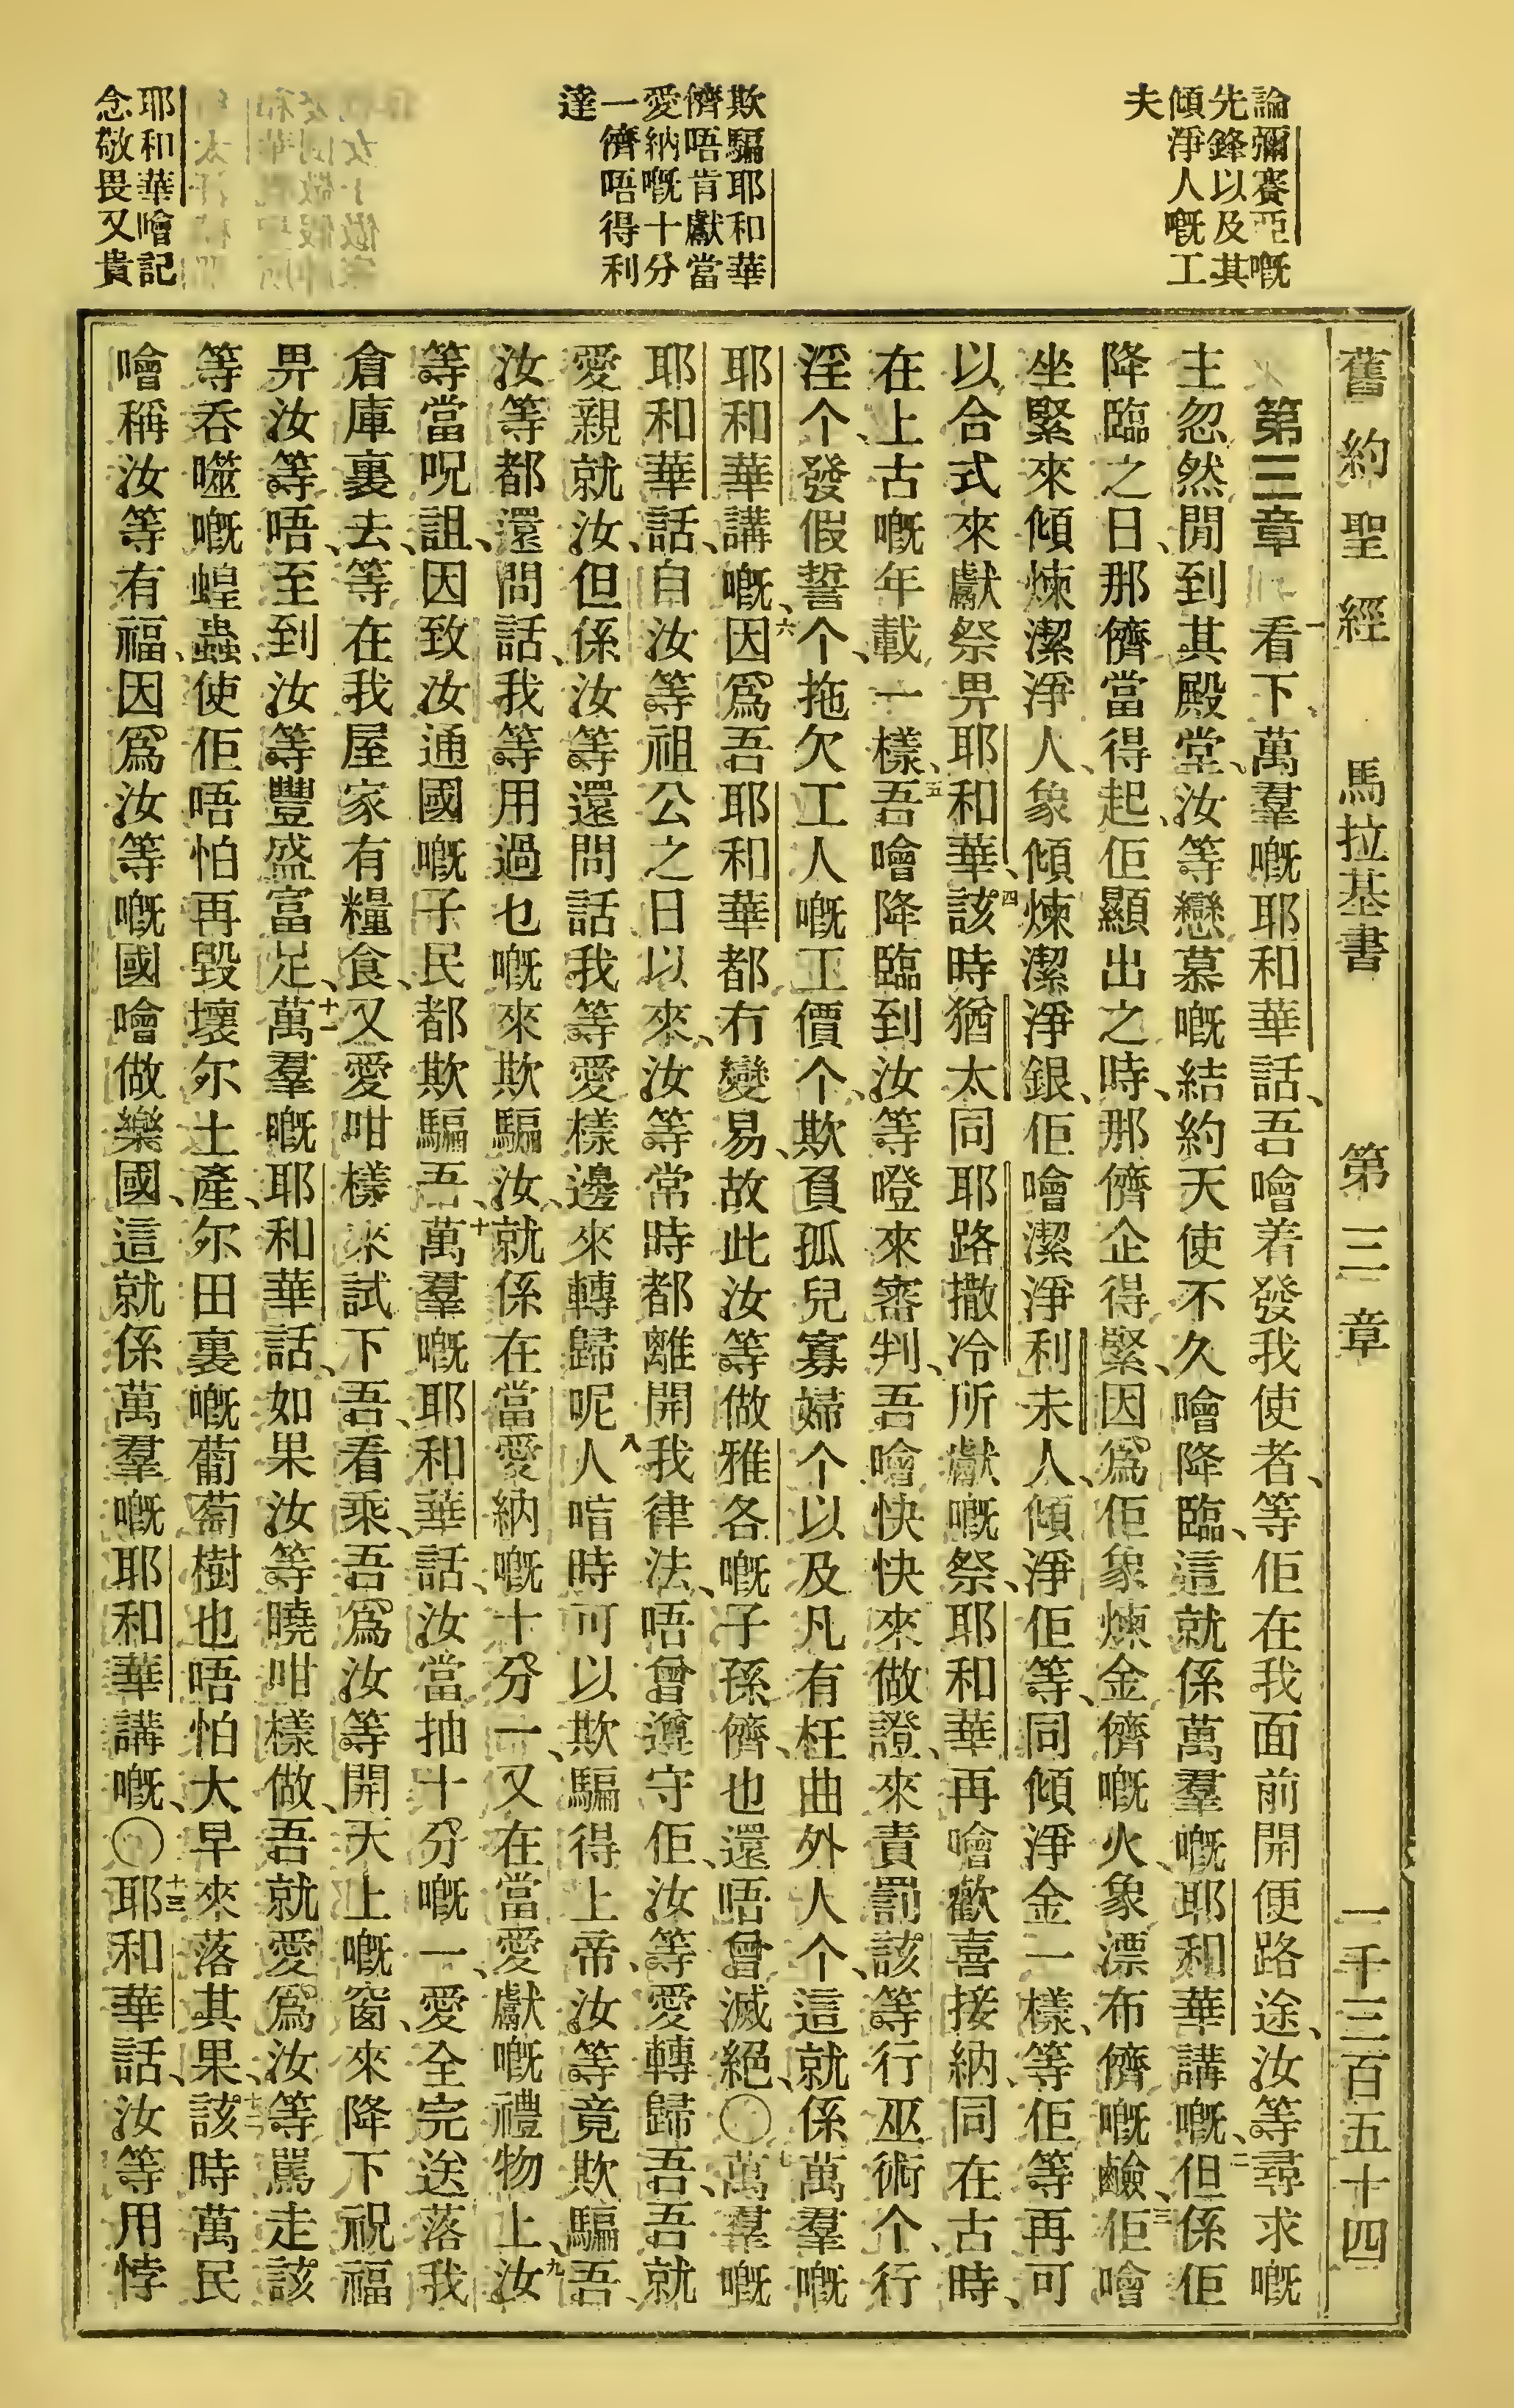 論彌賽亞嘅
先鋒以及其
傾淨人嘅工
夫
欺騙耶和華
儕唔肯獻當
愛納嘅十分
一儕唔得利
達
耶和華噲記
念敬畏又貴
舊約聖經 馬拉基書 第三章 一千三百五十四
第三章 一看下萬羣嘅耶和華話、吾噲着發我使者、等佢在我面前開便路途、汝等尋求嘅
主忽然閒到其殿堂、汝等戀慕嘅結約天使不久噲降臨、這就係萬羣嘅耶和華講嘅、二但係佢
降臨之日、那儕當得起、佢顯出之時、那儕企得緊、因爲佢象煉金儕嘅火、象漂布儕嘅鹼、三佢噲
坐緊來傾煉潔淨人、象傾煉潔淨銀、佢噲潔淨利未人、傾淨佢等、同傾淨金一樣、等佢等再可
以合式來獻祭畀耶和華、四該時猶太同耶路撒冷所獻嘅祭、耶和華再噲歡喜接納、同在古時、
在上古嘅年載一樣、五吾噲降臨到汝等嶝來審判、吾噲快快來做證、來責罰該等行巫術个、行
淫个、發假誓个、拖欠工人嘅工價个、欺負孤兒寡婦个、以及凡有枉曲外人个、這就係萬羣嘅
耶和華講嘅、六因爲吾耶和華都冇變易、故此汝等做雅各嘅子孫儕、也還唔曾滅絕、〇七萬羣嘅
耶和華話、自汝等祖公之日以來、汝等常時都離開我律法、唔曾遵守佢、汝等愛轉歸吾、吾就
愛親就汝、但係汝等還問話、我等愛樣邊來轉歸呢、八人喑時可以欺騙得上帝、汝等竟欺騙吾、
汝等都還問話、我等用過乜嘅來欺騙汝、就係在當愛納嘅十分一、又在當愛獻嘅禮物上、九汝
等當呪詛、因致汝通國嘅子民都欺騙吾、十萬羣嘅耶和華話、汝當抽十分嘅一、愛全完送落我
倉庫裏去、等在我屋家有糧食、又愛咁樣來試下吾、看乘、吾爲汝等開天上嘅窗、來降下祝福
畀汝等唔、至到汝等豐盛富足、十一萬羣嘅耶和華話、如果汝等曉咁樣做、吾就愛爲汝等罵走該
等呑噬嘅蝗蟲、使佢唔怕再毀壞尔土產、尔田裏嘅葡萄樹也唔怕大早來落其果、十二該時萬民
噲稱汝等有福、因爲汝等嘅國噲做樂國、這就係萬羣嘅耶和華講嘅、〇十三耶和華話、汝等用悖